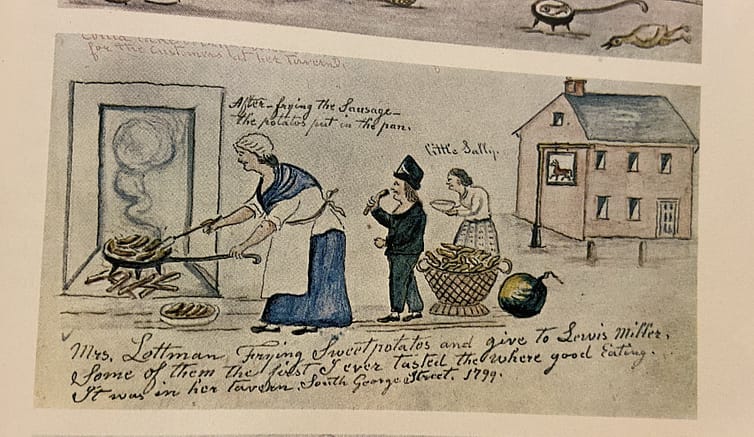 for the customers at her tavern.
After-frying the Sausage-
the potatos put in the pan.
little Sally.
Mrs. Lottman, Frying Sweet potatos and give to Lewis Miller.
Some of them the first I ever tasted the where good Eating.
It was in her tavern. South George Street. 1799.